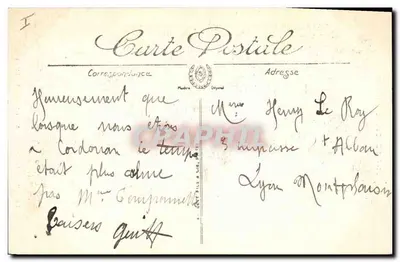 I
Carte Postale
Correspondance
Adresse
Heureusement que
lorsque nous étions
à Cordouan le temps
était plus calme
pas Mme
Baisers
Mmes Henry Le Roy
5 impasse St Alban
Lyon Montplaisir
CPARAMA